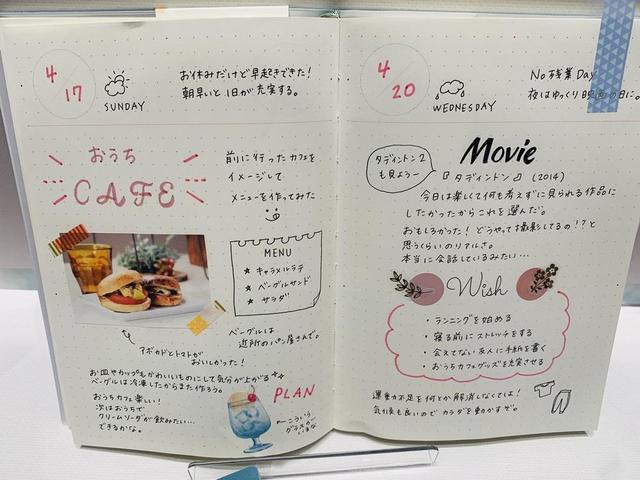 4/17
SUNDAY
お休みだけど早起きできた!
朝早いと1日が充実する。
おうち
CAFE
前に行ったカフェを
イメージして
メニューを作ってみた
MENU
★ キャラメルラテ
★ ベーグルサンド
★ サラダ
ベーグルは
近所のパン屋さんで。
アボカドとトマトが
おいしかった!
お皿やカップもかわいいものにして気分が上がる
ベーグルは冷凍したからまた作ろう。
おうちカフェ楽しい!
次はおうちで
クリームソーダが飲みたい…
できるかな。
PLAN
こういう
グラスが
4/20
WEDNESDAY
No 残業 Day
夜はゆっくり映画の日に。
タディントン2
も見よう
Movie
『タディントン』(2014)
今日は楽しくて何も考えずに見られる作品に
したかったからこれを選んだ。
おもしろかった!どうやって撮影してるの!?と
思うくらいのリアルさ。
本当に会話しているみたい…
Wish
・ランニングを始める
・寝る前にストレッチをする
・会えてない友人に手紙を書く
・おうちカフェグッズを充実させる
運動不足を何とか解消しなくては!
気候も良いのでカラダを動かすぞ。